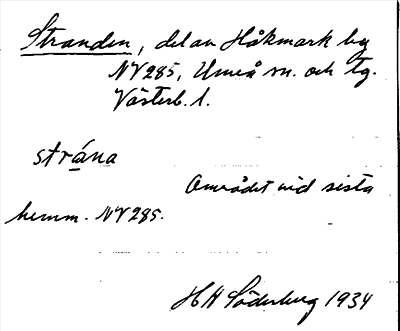 Stranden, del av Håkmark by
NV 285, Umeå sn. och tg.
Västerb. l.
strána
Området vid sista
hemm. NV 285.
HH Söderberg 1934